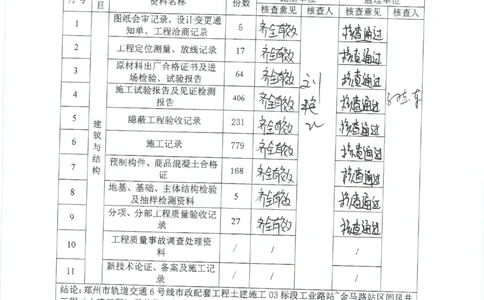 序号 项目 资料名称 份数 核查意见 核查人 核查意见 核查人
建筑与结构
1 图纸会审记录,设计变更通知单、工程洽商记录 5 齐全有效 核查通过
2 工程定位测量、放线记录 17 齐全有效 核查通过
3 原材料出厂合格证书及进场检验、试验报告 64 齐全有效 核查通过
4 施工试验报告及见证检测报告 406 齐全有效 核查通过
5 隐蔽工程验收记录 231 齐全有效 核查通过
6 施工记录 779 齐全有效 核查通过
7 预制构件、商品混凝土合格证 168 齐全有效 核查通过
8 地基、基础、主体结构检验及抽样检测资料 5 齐全有效 核查通过
9 分项、分部工程质量验收记录 27 齐全有效 核查通过
10 工程质量事故调查处理资料 / / /
11 新技术论证、备案及施工记录 / / /
结论:郑州市轨道交通6号线市政配套工程土建施工03标段工业路站~金马路站区间风井